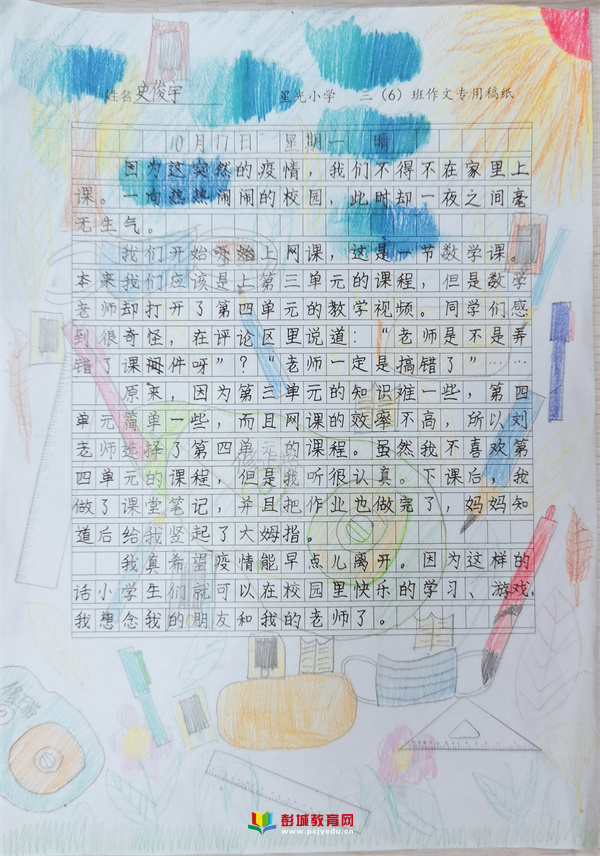 姓名 史俊宇 星光小学 三（6）班作文专用稿纸
10月17日 星期一 晴
因为这突然的疫情，我们不得不在家里上
课。一向热热闹闹的校园，此时却一夜之间毫
无生气。
我们开始上网课，这是一节数学课。
本来我们应该是上第三单元的课程，但是数学
老师却打开了第四单元的教学视频。同学们感
到很奇怪，在评论区里说道：“老师是不是弄
错了课件呀”？“老师一定是搞错了”……
原来，因为第三单元的知识难一些，第四
单元简单一些，而且网课的效率不高，所以刘
老师选择了第四单元的课程。虽然我不喜欢第
四单元的课程，但是我听很认真。下课后，我
做了课堂笔记，并且把作业也做完了，妈妈知
道后给我竖起了大姆指。
我真希望疫情能早点儿离开。因为这样的
话小学生们就可以在校园里快乐的学习、游戏，
我想念我的朋友和我的老师了。
彭城教育网
www.pcjyedu.cn